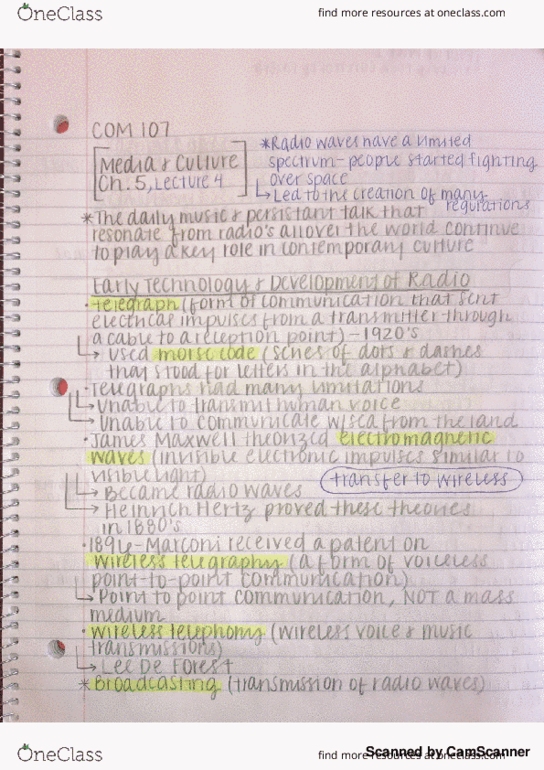 OneClass
find more resources at oneclass.com
COM 107
Media & Culture
Ch. 5, Lecture 4
*Radio waves have a limited
spectrum - people started fighting
over space
Led to the creation of many
regulations
*The daily music & persistant talk that
resonate from radio's allover the world continue
to play a key role in contemporary culture
Early Technology & Development of Radio
· telegraph (form of communication that sent
electrical impulses from a transmitter through
a cable to a reception point) - 1920's
Used morse code (series of dots & dashes
that stood for letters in the alphabet)
· Telegraphs had many limitations
Unable to transmit human voice
Unable to communicate w/sea from the land
· James Maxwell theorized electromagnetic
waves (invisible electronic impulses similar to
visible light)
transfer to wireless
Became radio waves
Heinrich Hertz proved these theories
in 1880's
· Marconi received a patent on
wireless telegraphy (a form of voiceless
point-to-point communication)
Point to point communication, NOT a mass
medium
· wireless telephony (wireless voice & music
transmissions)
Lee De Forest
* Broadcasting (transmission of radio waves)
OneClass
find more resources at oneclass.com
Scanned by CamScanner